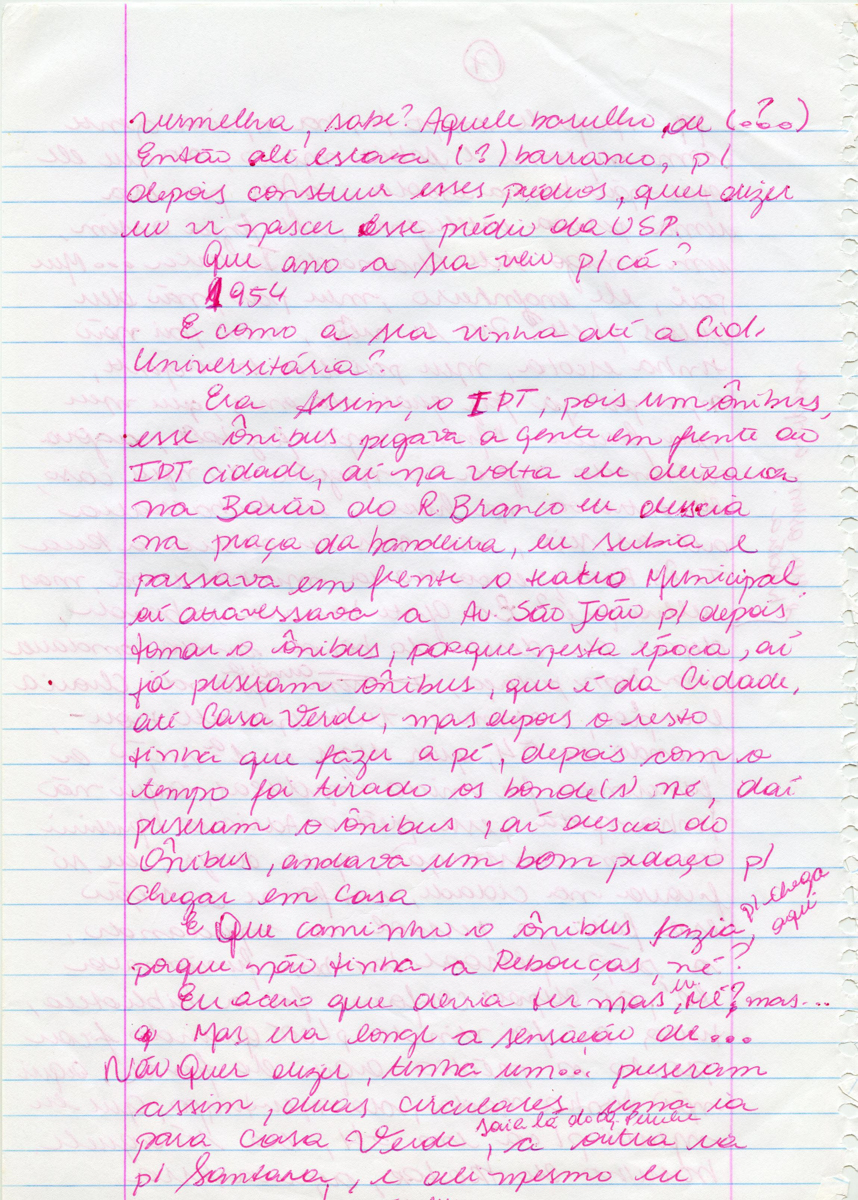 vermelha, sabe? Aquele barulho, de (...?)
Então ali estava (?) barranco, p/
depois construir esses prédios, quer dizer
eu vi nascer esse prédio da USP.
Que ano a sra veio p/ cá?
1954
E como a sra vinha até a Cid.
Universitária?
Era Assim, o IPT, pois um ônibus,
esse ônibus pegava a gente em frente ao
IPT cidade, aí na volta ele deixava
na Barão do R. Branco eu descia
na praça da bandeira, eu subia e
passava em frente o teatro Municipal
aí atravessava a Av. São João p/ depois
tomar o ônibus, porque nesta época, aí
já puseram ônibus, que é da Cidade,
até Casa Verde, mas depois o resto
tinha que fazer a pé, depois com o
tempo foi tirado os bonde(s) né, daí
puseram o ônibus, aí descia do
Ônibus, andava um bom pedaço p/
chegar em casa
E Que caminho o ônibus fazia, p/ chega aqui
porque não tinha a Rebouças, né?
Eu acho que devia ter mas, né? mas...
Mas era longe a sensação de...
Não Quer dizer, tinha um... puseram
assim, duas circulares, uma ia
para Casa Verde, saia lá do a outra ia
p/ Santana, e ali mesmo eu